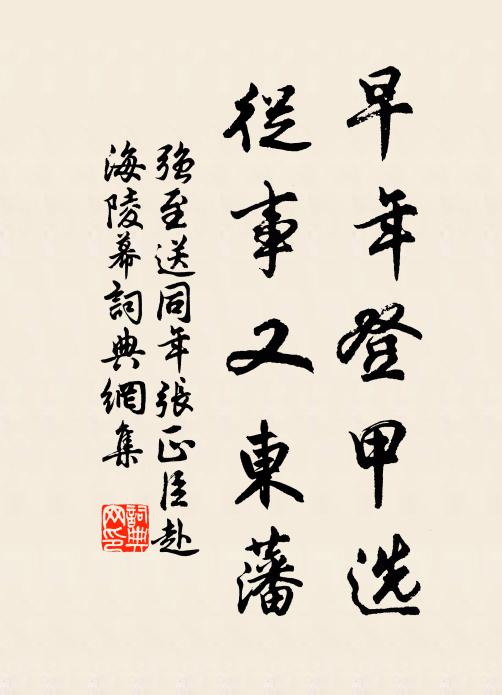 早年登甲选
従事又東藩
强至送同年張正臣赴
海陵幕詞典網集
詞典网印